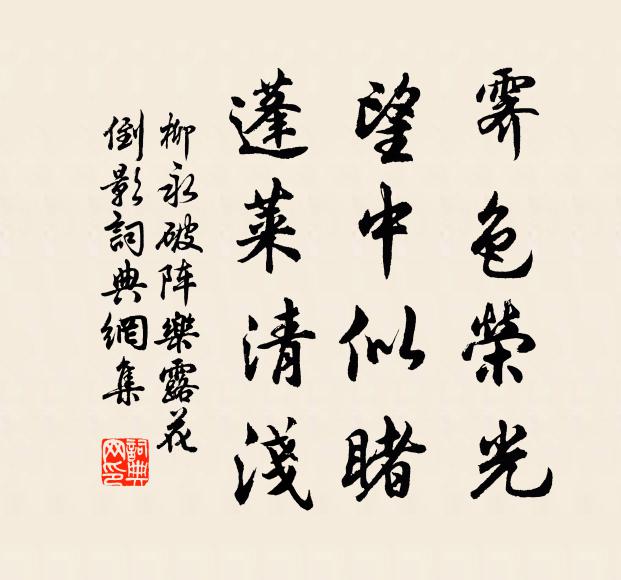 霽色榮光
望中似睹
蓬萊清淺
柳永破阵樂露花
倒影詞典網集
詞典网印